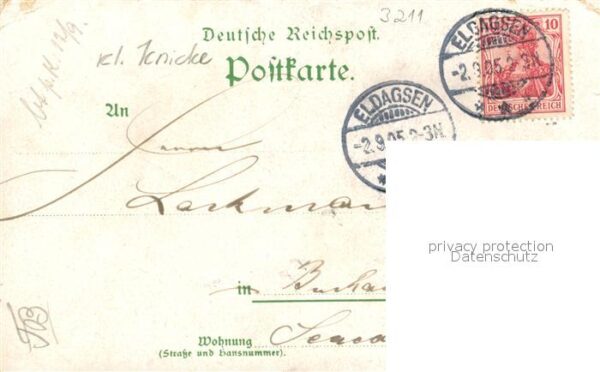 3211
Deutsche Reichspost.
Kl. Knicke
Postkarte.
ELDAGSEN
-2.9.05.2-3N.
10
DEUTSCHES REICH
ELDAGSEN
-2.9.05.2-3N.
An
Herrn
Lackman
privacy protection
Datenschutz
in
Wohnung
(Straße und Hausnummer).